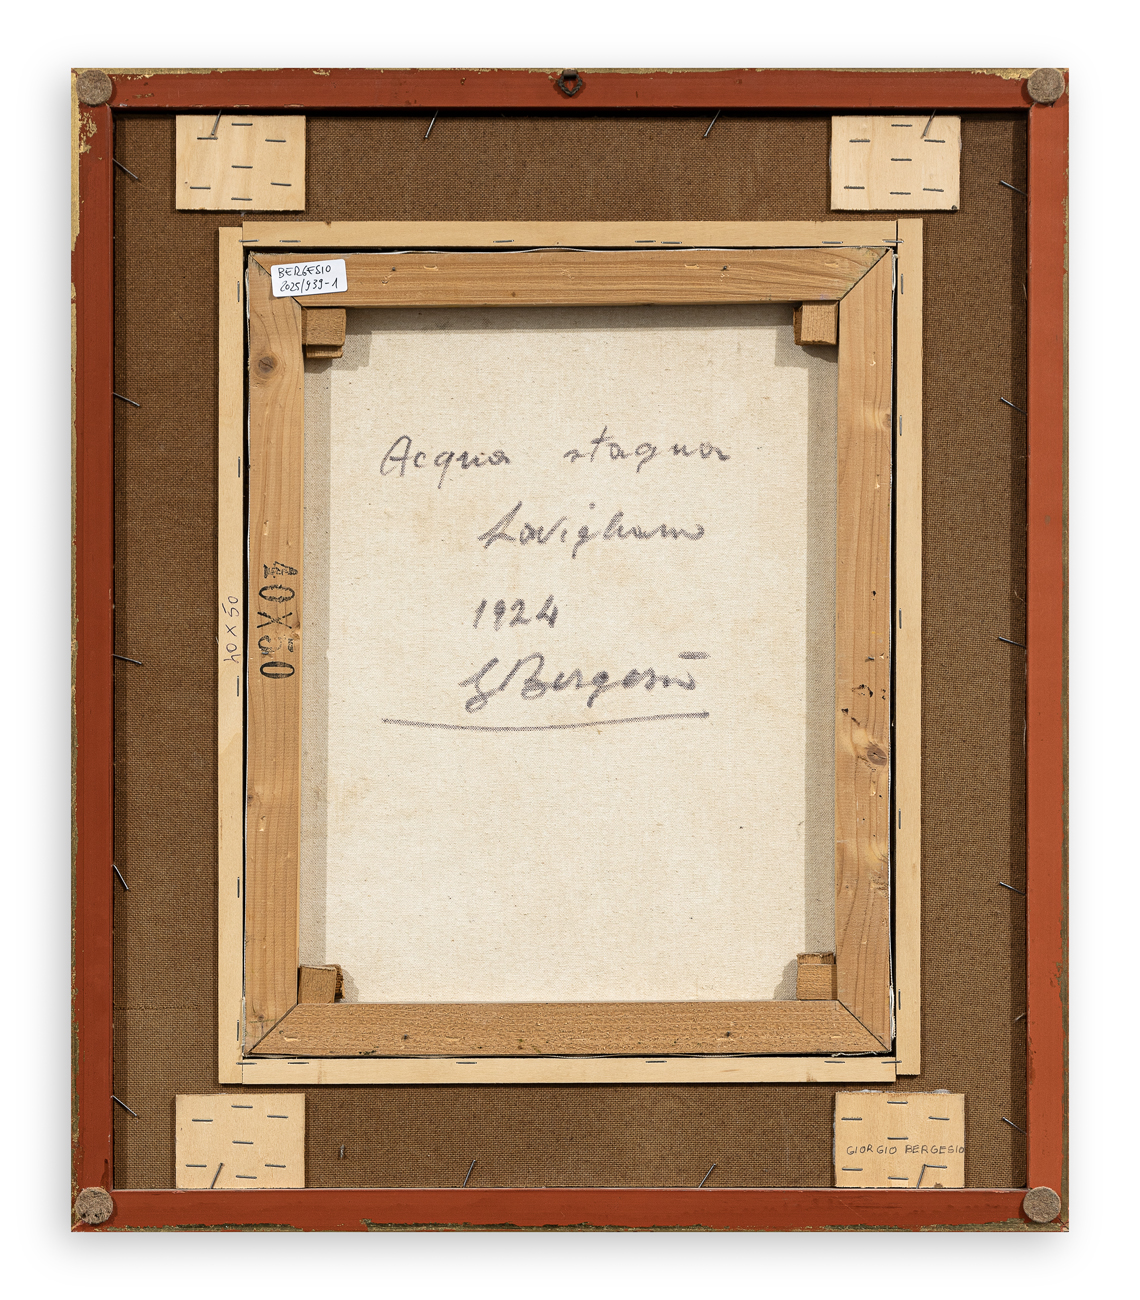 BERGESIO
2025/939-1
Acqua stagna
Lavigliano
1924
G Bergesio
40 X 50
40X50
GIORGIO BERGESIO